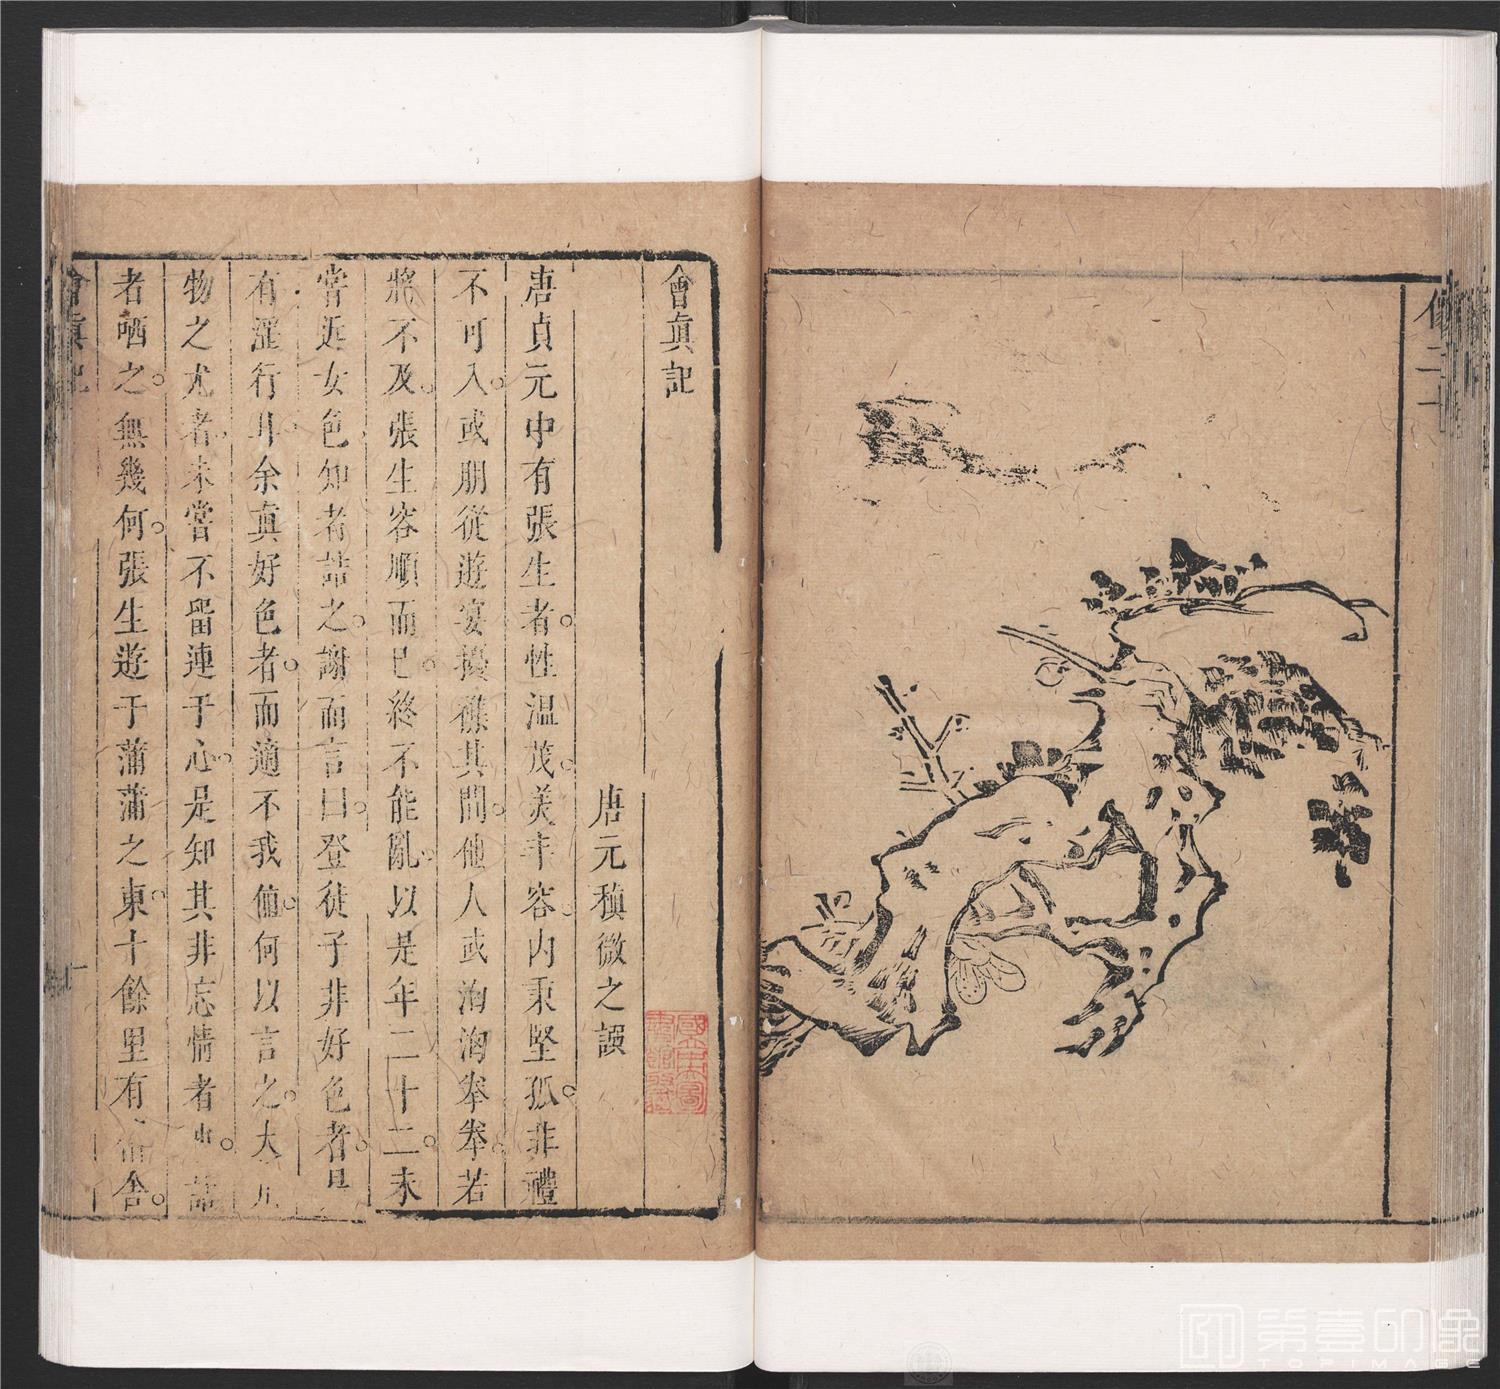 會眞記
唐元稹微之譔
唐貞元中有張生者性温茂美丰容内秉堅孤非禮
不可入或朋從遊宴擾雜其間他人或洶洶拳拳若
將不及張生容順而已終不能亂以是年二十二未
嘗近女色知者詰之謝而言曰登徒子非好色者是
有淫行耳余眞好色者而適不我値何以言之大凡
物之尤者未嘗不畱連于心是知其非忘情者也詰
者哂之無幾何張生遊于蒲蒲之東十餘里有僧舍
會眞記
一
國立中央圖書館收藏
第壹印象
TOPIMAGE